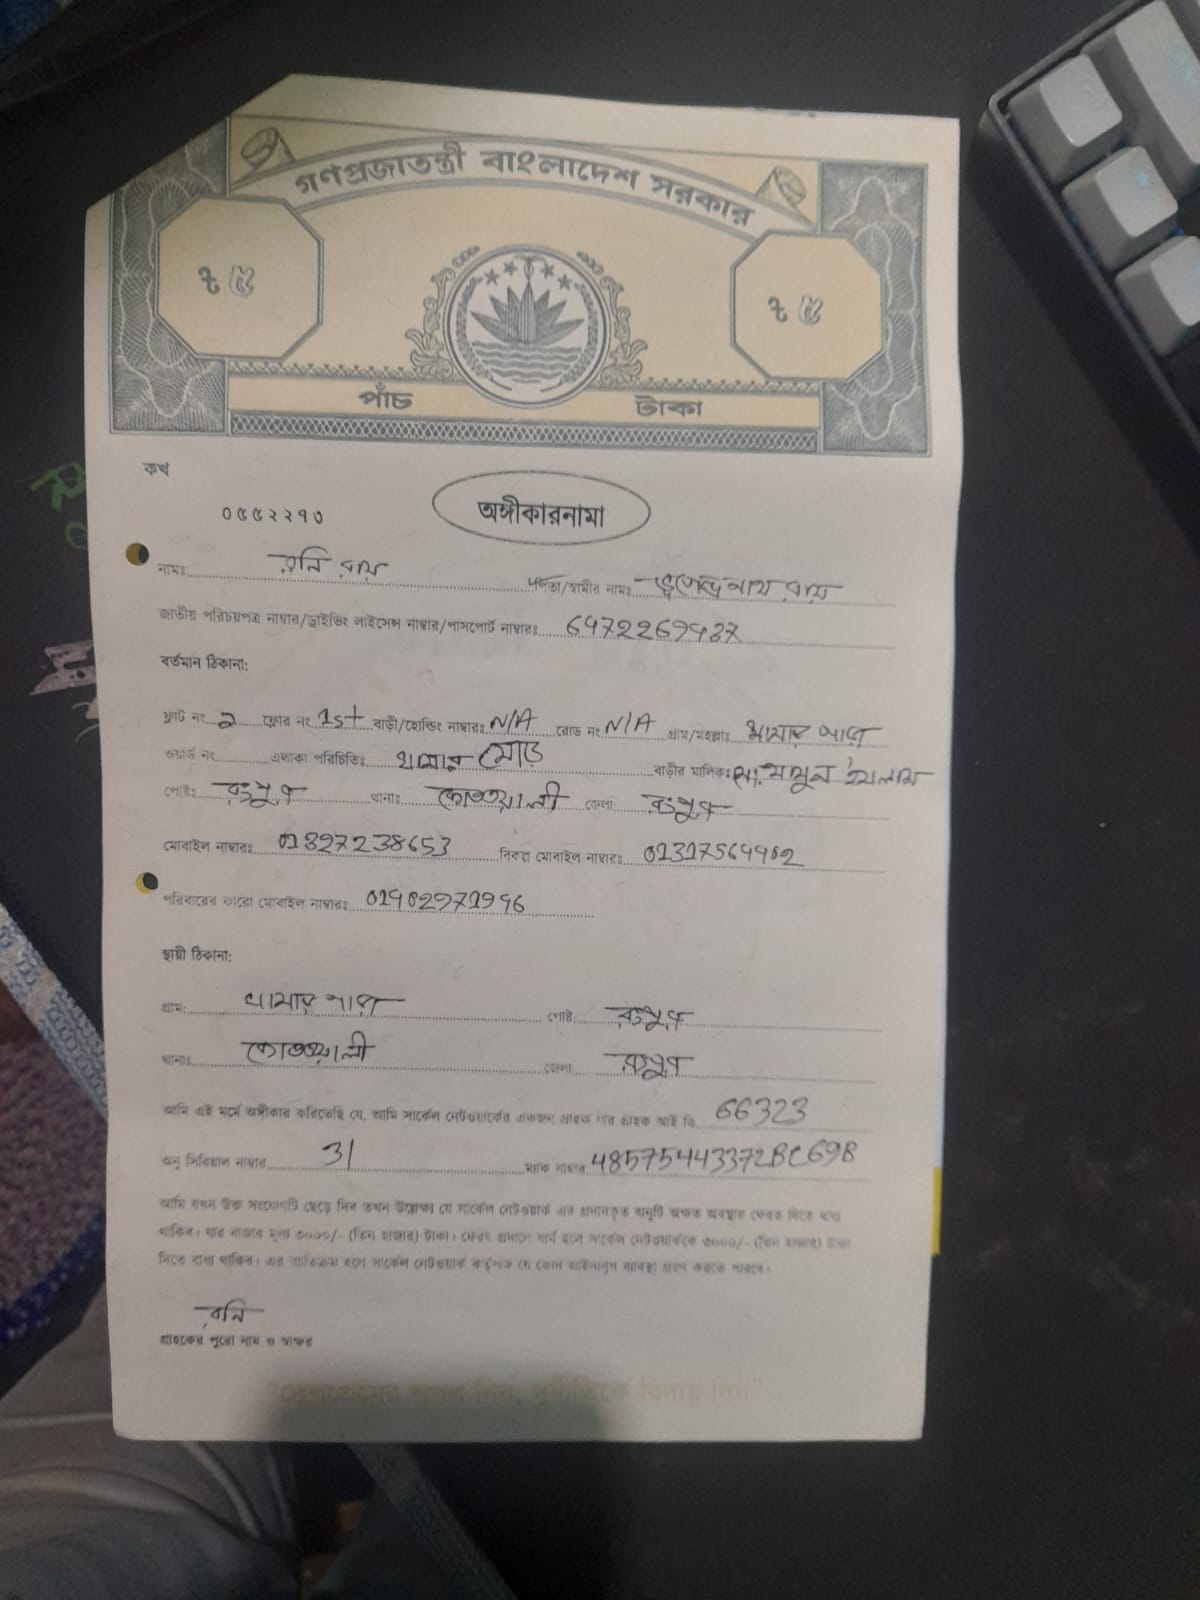 গণপ্রজাতন্ত্রী বাংলাদেশ সরকার
৳ ৫ ৳ ৫
পাঁচ টাকা
কখ
০৫৫২২৭৩
অঙ্গীকারনামা
নামঃ রনি রায় পিতা/স্বামীর নামঃ ভূপেন্দ্র নাথ রায়
জাতীয় পরিচয়পত্র নাম্বার/ড্রাইভিং লাইসেন্স নাম্বার/পাসপোর্ট নাম্বারঃ 6472269437
বর্তমান ঠিকানা:
ফ্লাট নং 2 ফ্লোর নং 1st বাড়ী/হোল্ডিং নাম্বারঃ N/A রোড নং N/A গ্রাম/মহল্লাঃ খামার পাড়া
ওয়ার্ড নং এলাকা পরিচিতিঃ খামার মোড় বাড়ীর মালিকঃ মোঃ মামুন ইসলাম
পোষ্টঃ রংপুর থানাঃ কোতয়ালী জেলা রংপুর
মোবাইল নাম্বারঃ 01827238653 বিকল্প মোবাইল নাম্বারঃ 01317564402
পরিবারের কারো মোবাইল নাম্বারঃ
স্থায়ী ঠিকানা:
গ্রাম: খামার পাড়া পোষ্ট: রংপুর
থানাঃ কোতয়ালী জেলা রংপুর
আমি এই মর্মে অঙ্গীকার করিতেছি যে, আমি সার্কেল নেটওয়ার্কের একজন গ্রাহক যার গ্রাহক আই ডি 66323
অনু সিরিয়াল নাম্বার 31 ম্যাক নাম্বার 48575443372BC69B
আমি যখন উক্ত সংযোগটি ছেড়ে দিব তখন উল্লেখ্য যে সার্কেল নেটওয়ার্ক এর প্রদানকৃত অনুটি অক্ষত অবস্থায় ফেরত দিতে বাধ্য
থাকিব। যার বাজার মূল্য ৩০০০/- (তিন হাজার) টাকা। ফেরৎ প্রদানে ব্যর্থ হলে সার্কেল নেটওয়ার্ককে ৩০০০/- (তিন হাজার) টাকা
দিতে বাধ্য থাকিব। এর ব্যতিক্রম হলে সার্কেল নেটওয়ার্ক কর্তৃপক্ষ যে কোন আইনানুগ ব্যবস্থা গ্রহণ করতে পারবে।
রনি
গ্রাহকের পুরো নাম ও স্বাক্ষর
"দেশপ্রেমের শপথ নিন, দুর্নীতিকে বিদায় দিন"